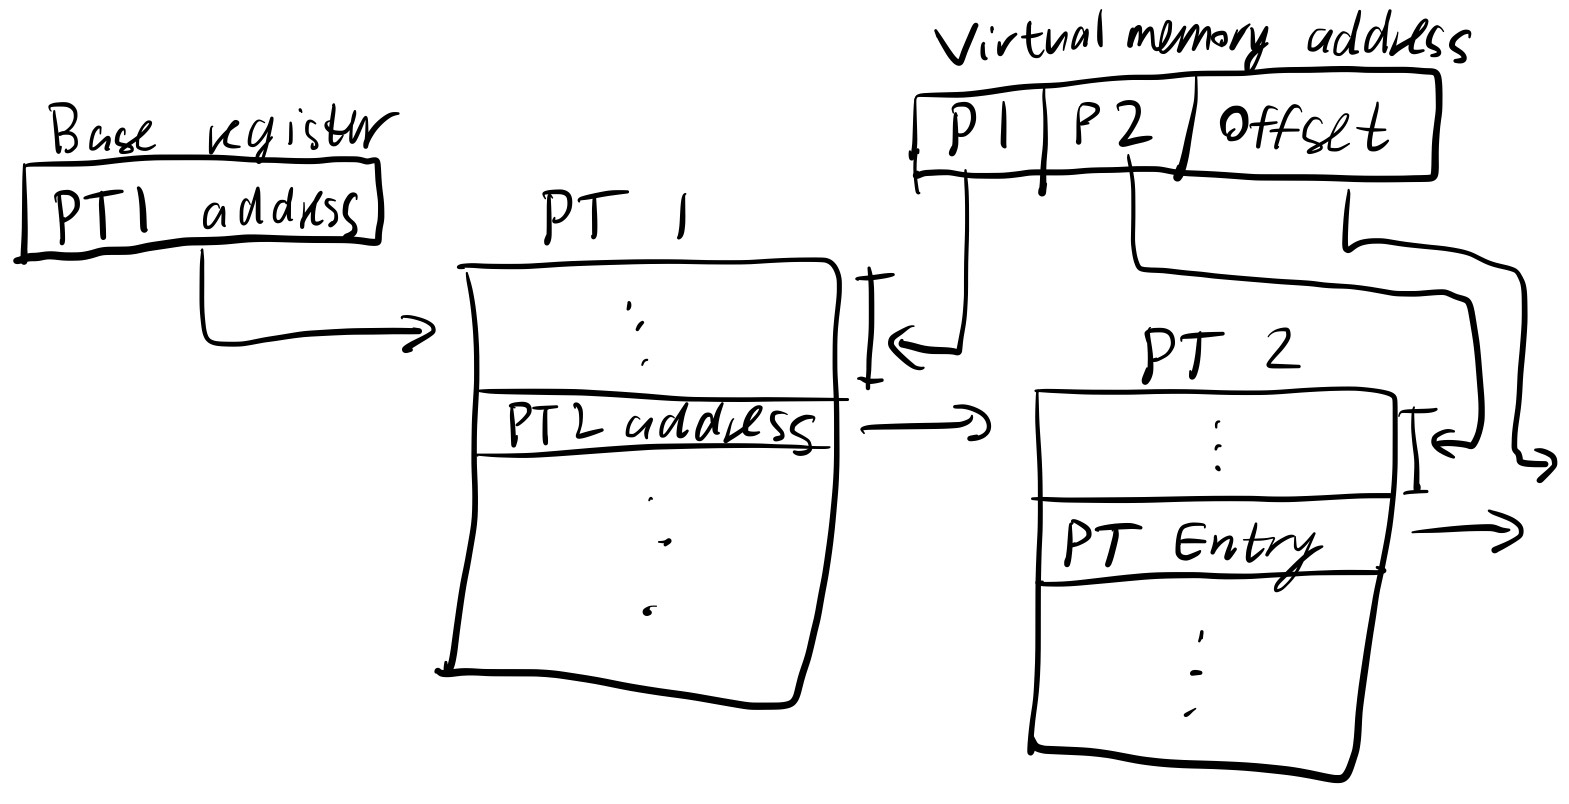 Virtual memory address
P1 P2 Offset
Base register
PT1 address
PT 1
PT2 address
PT 2
PT Entry